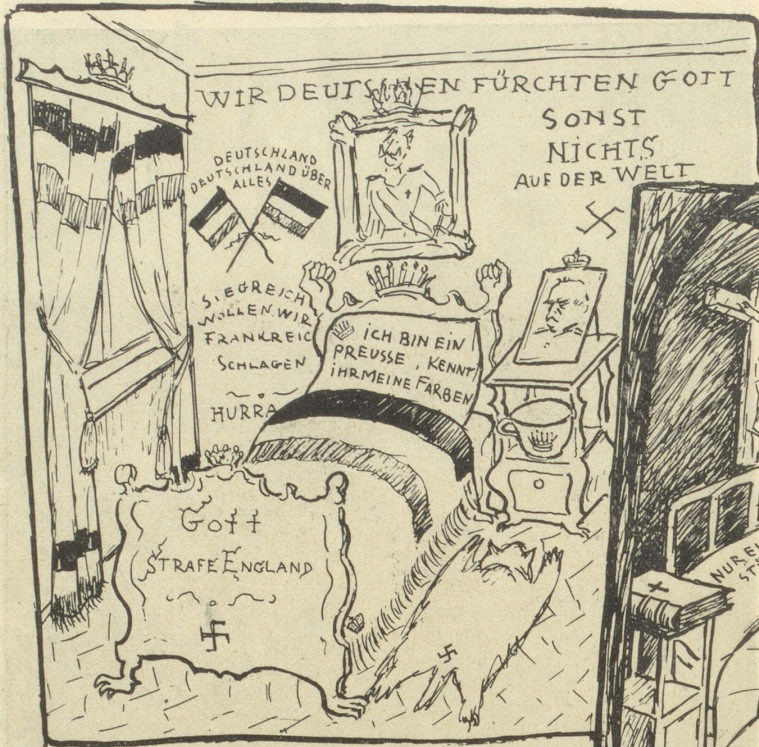 WIR DEUTSCHEN FÜRCHTEN GOTT
SONST
NICHTS
AUF DER WELT
DEUTSCHLAND
DEUTSCHLAND ÜBER
ALLES
SIEGREICH
WOLLEN WIR
FRANKREIC
SCHLAGEN
HURRA
ICH BIN EIN
PREUSSE, KENNT
IHR MEINE FARBEN
GOTT
STRAFE ENGLAND
NUR